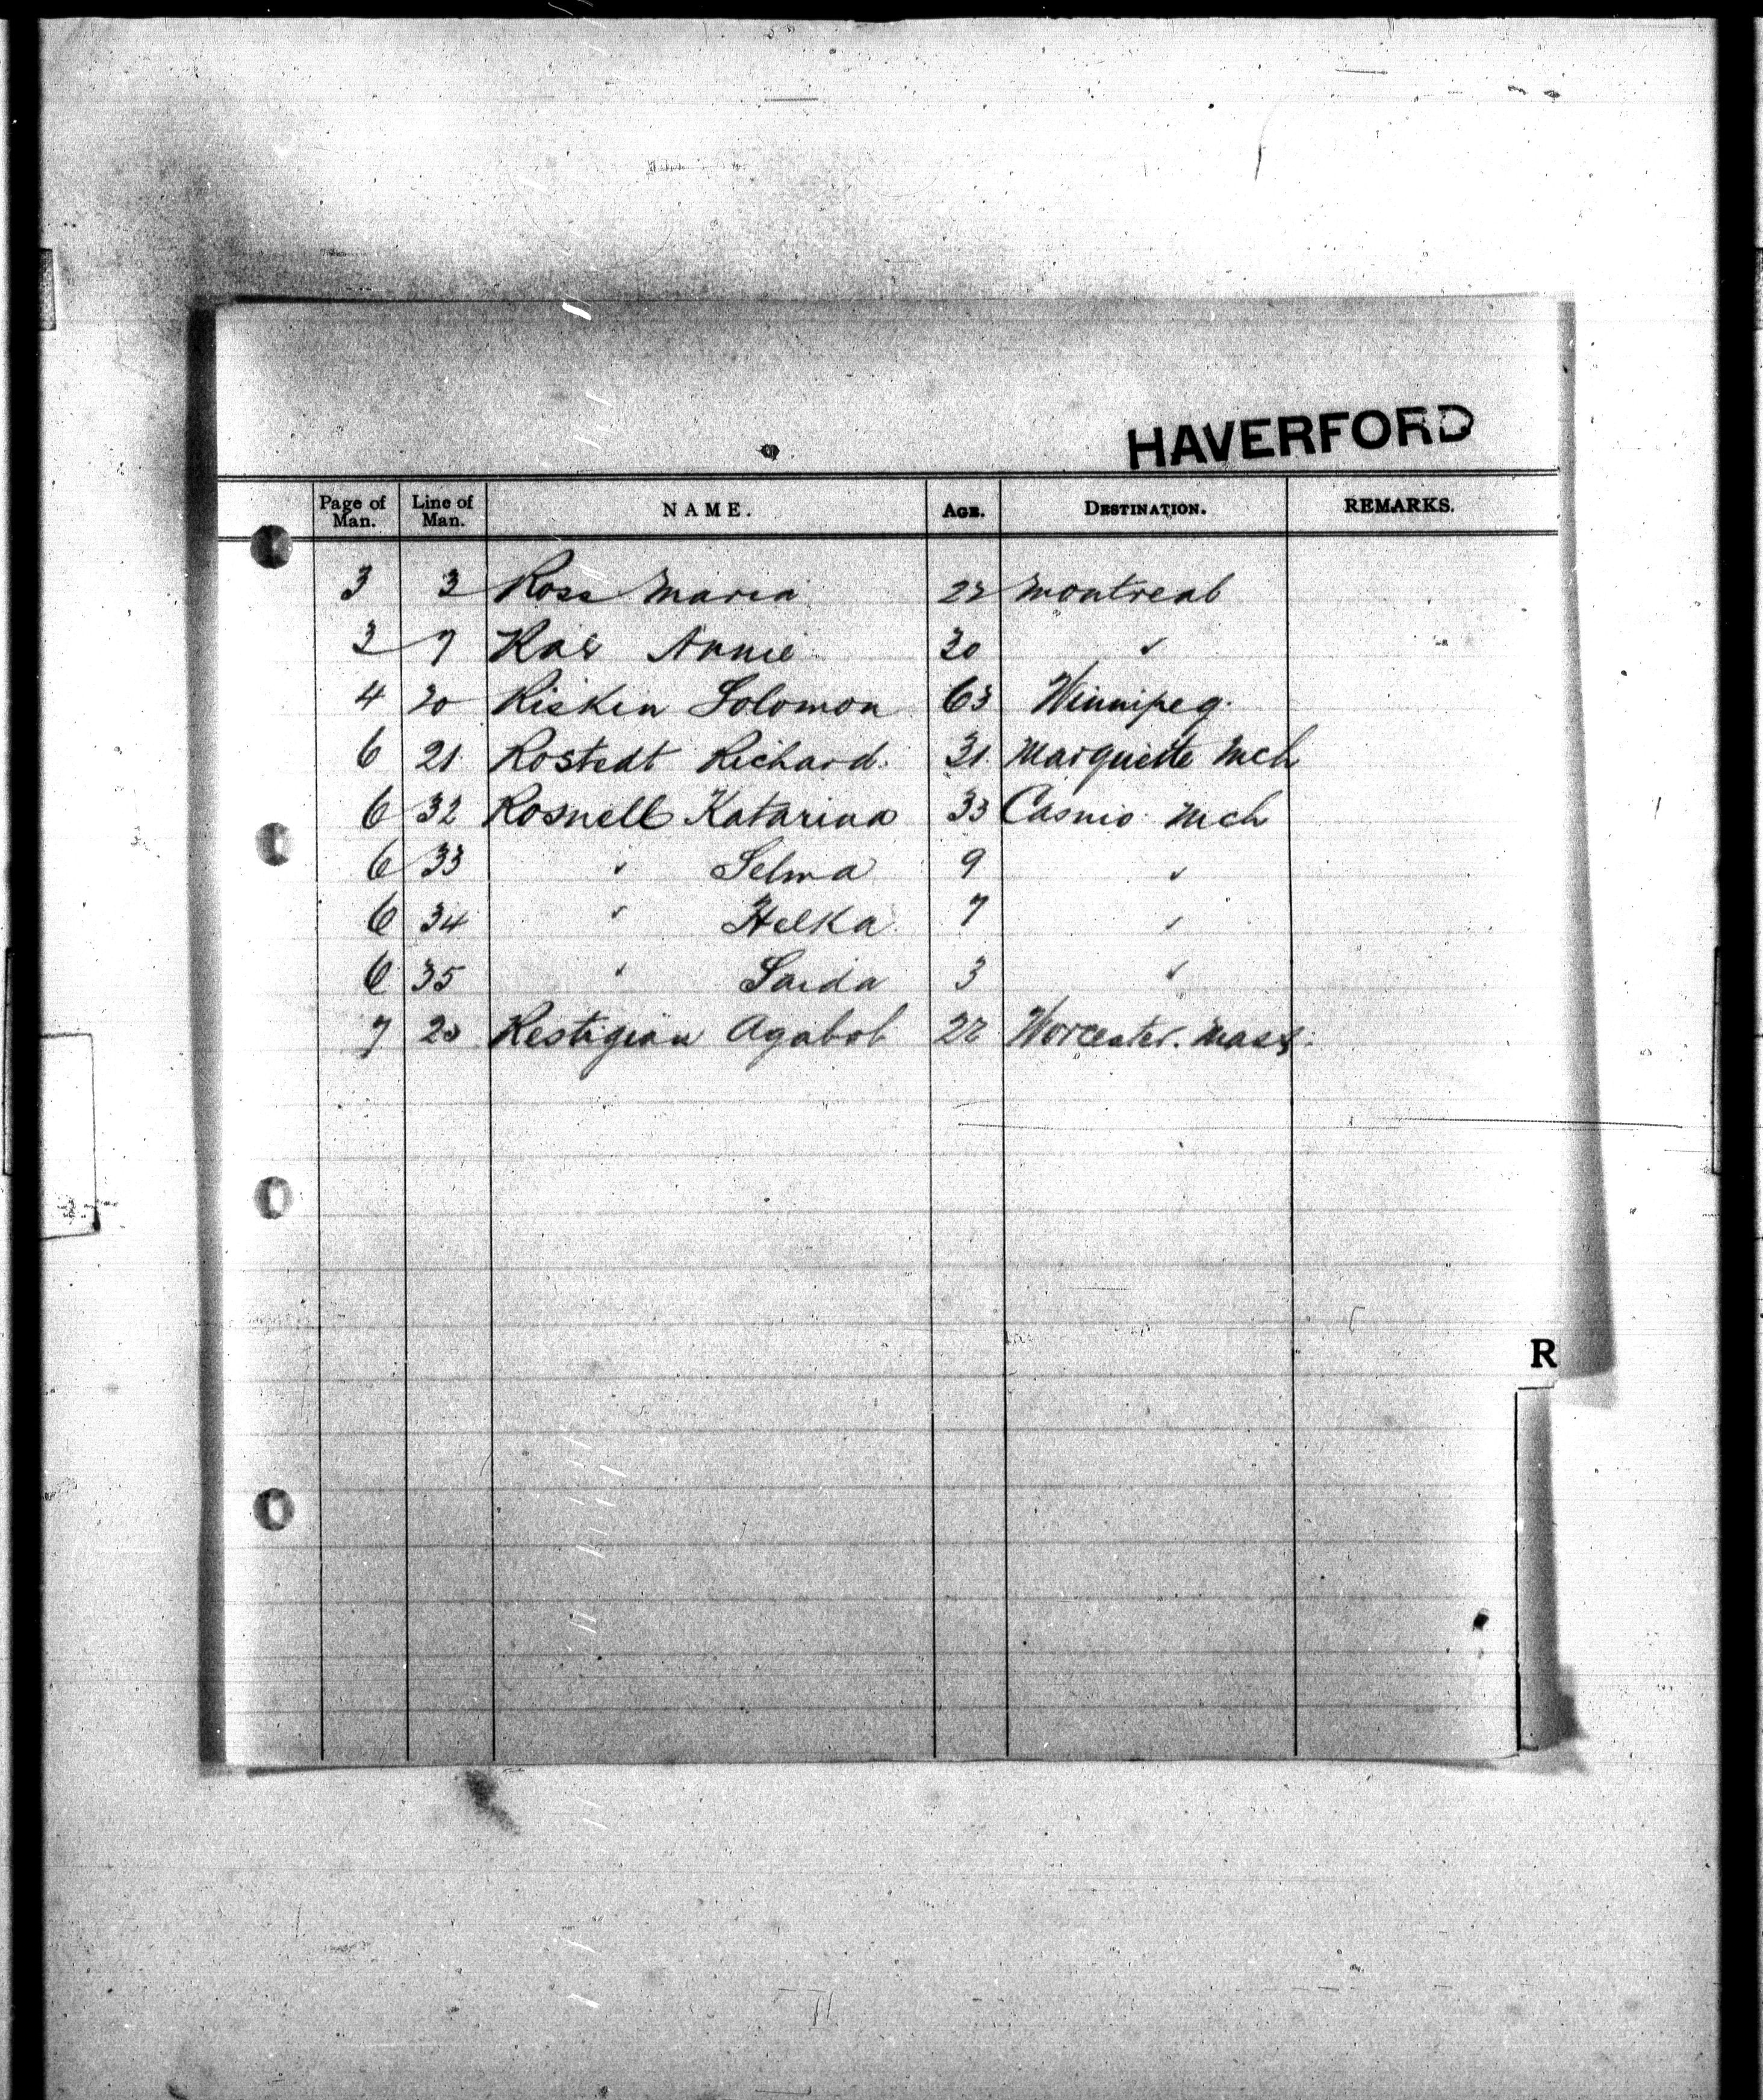 HAVERFORD
Page of Man. Line of Man. NAME. AGE. DESTINATION. REMARKS.
3 3 Ross Maria 22 Montreal
3 7 Rae Annie 30 "
4 20 Riskin Solomon 63 Winnipeg.
6 21 Rostedt Richard. 31 Marquette Mch
6 32 Rosnell Katarina 33 Mch
6 33 " Selma 9 "
6 34 " Helka 7 "
6 35 " Saida 3 "
7 20 Restigian Agabob 22 Worcester. Mass.
R